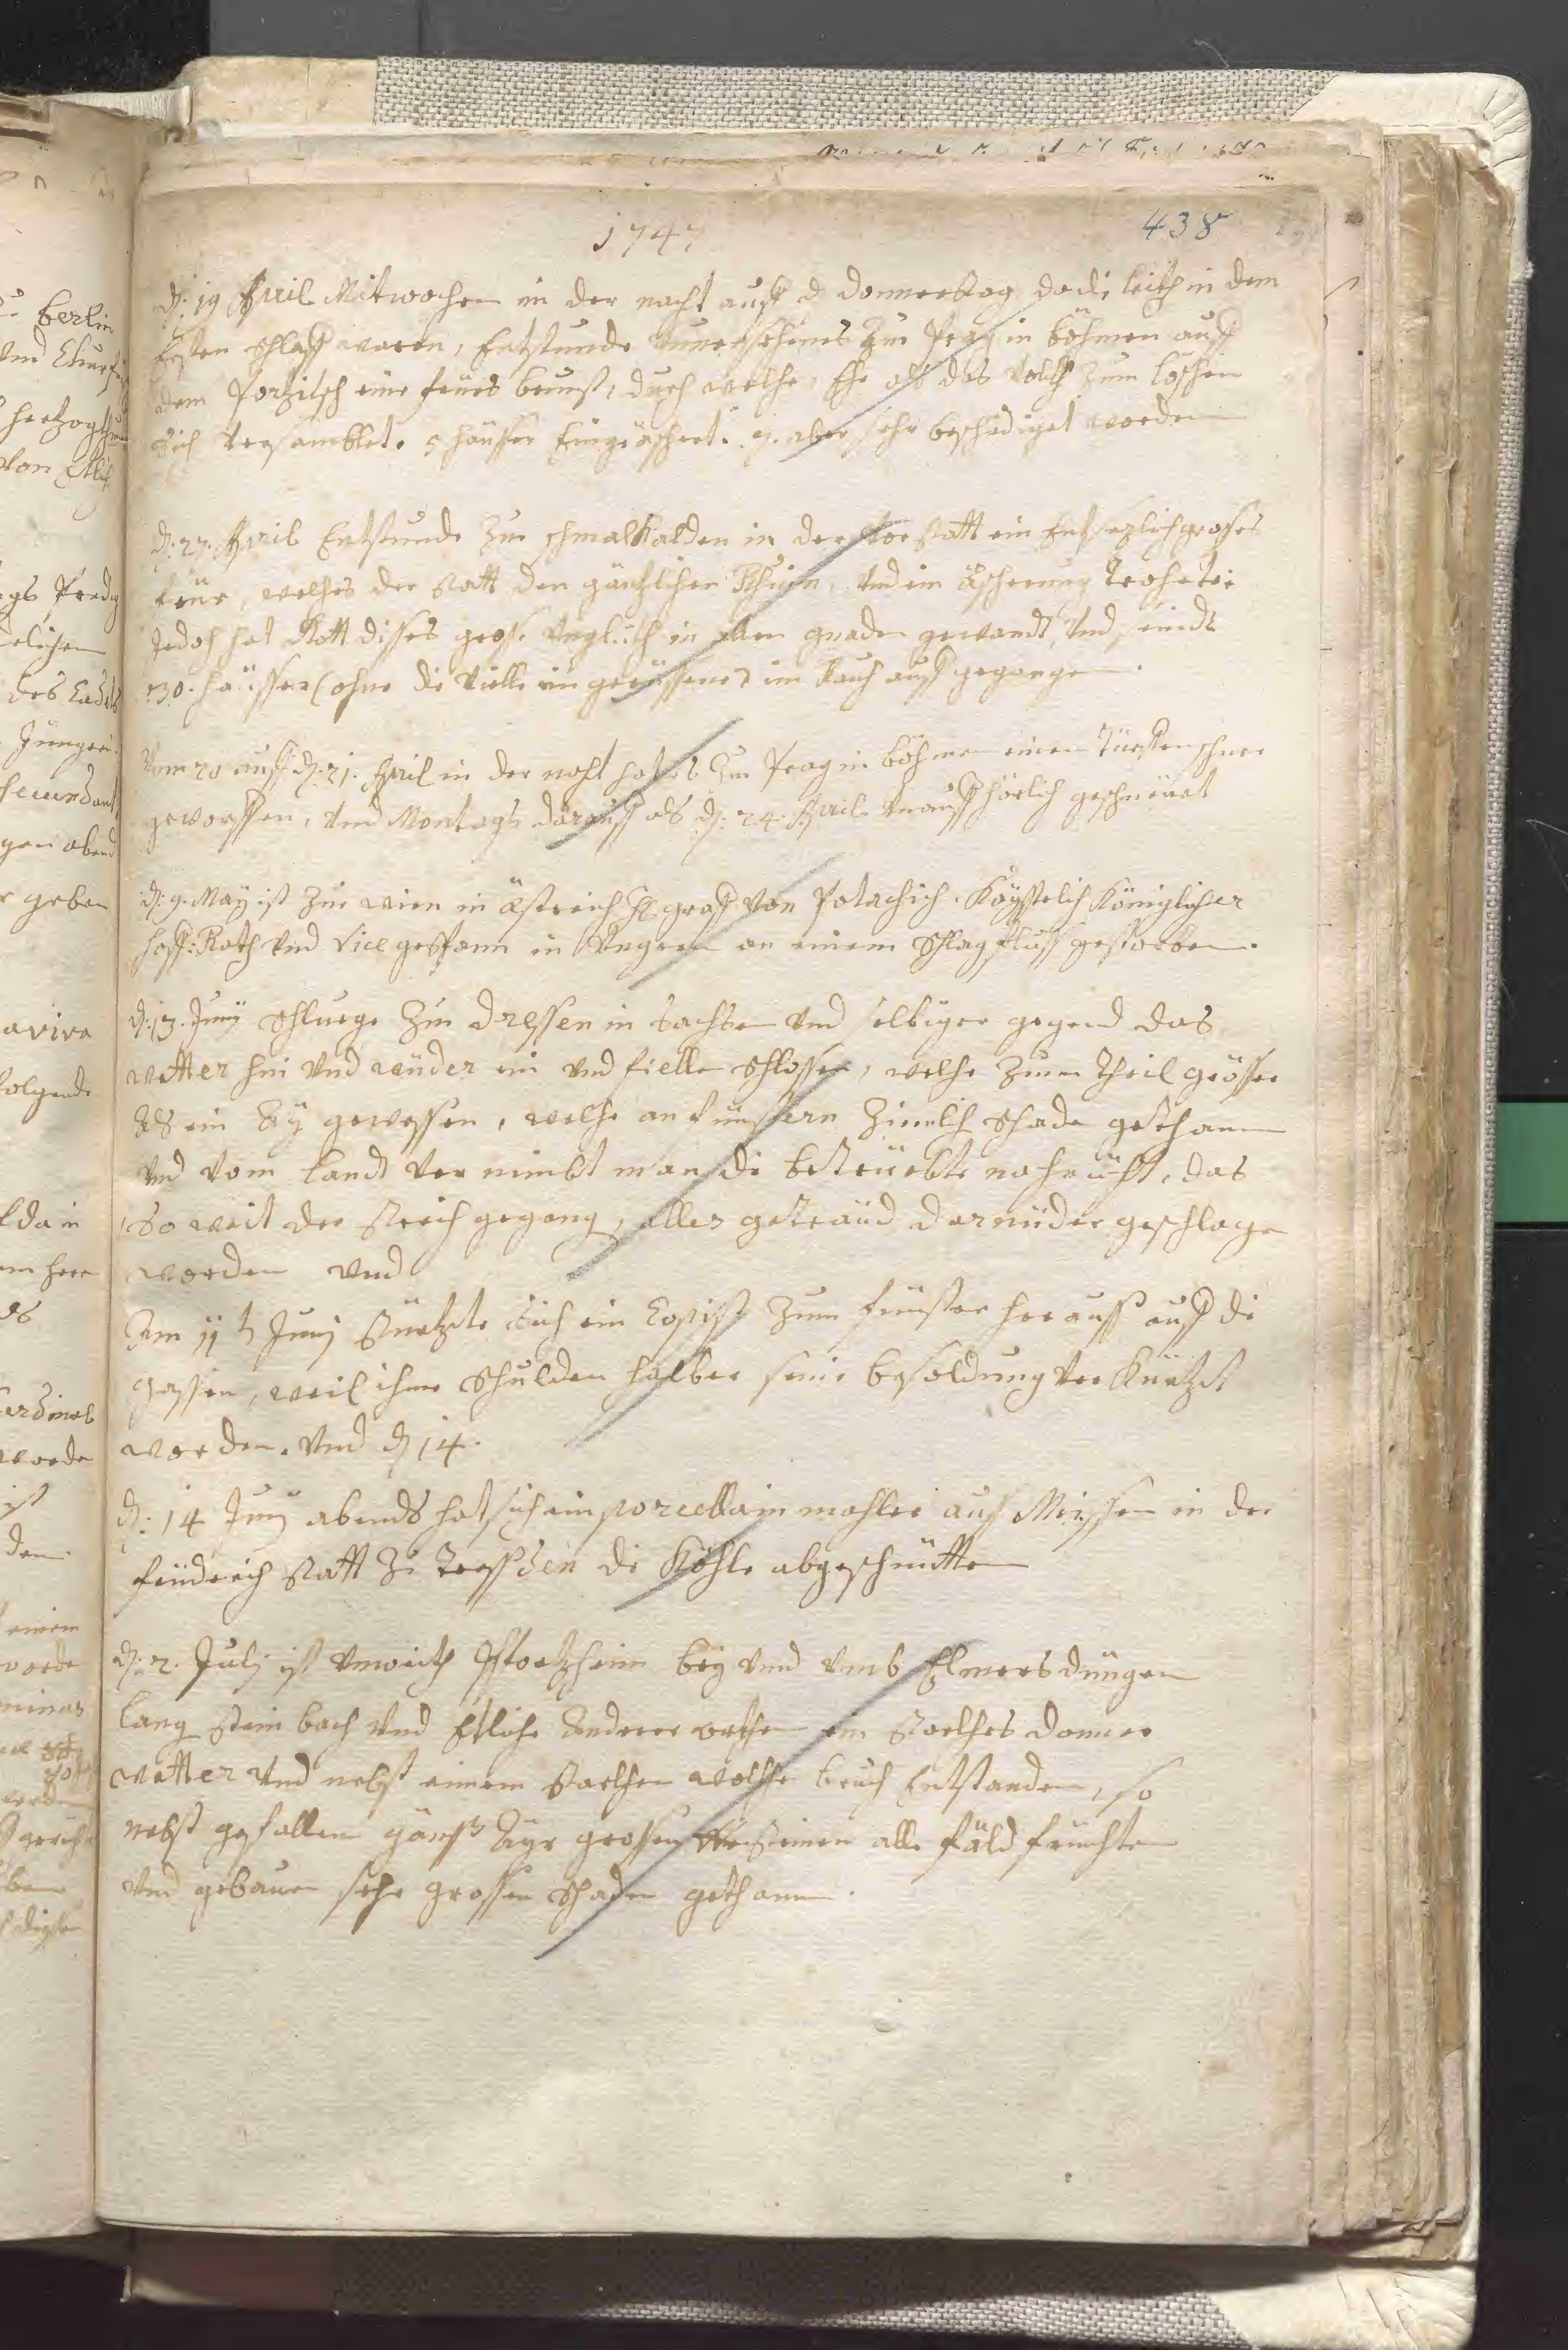 1747
438
d: 19 April Mitwochen in der nacht auff d donnerstag da di leith in dem
Ersten schlaff waren, Entstunde unversehens zu Prag in böhmen auff
dem Porzitsch eine feüers brunst, durch welche, Ehe als das volck zum löschen
sich versamblet. 5 häusser Eingeäschert. 9. aber sehr beschediget worden
d: 27. April Entstunde zu schmalkalden in der vorstatt ein Entsezlich grosses
feür, welches der statt den gäntzlichen Rhuin, und ein äscherung trohete
Jedoch hat Gott disses grosse unglückh in allen gnaden gewandt, und seindt
30. häüsser (ohne di vielle ein gerissene) im Rauch auff gegangen.
vom 20 auff d: 21. April in der nacht hat es zu Prag in böhmen einen schnee
geworffen, und Montags darauff als d: 24. April unauffhörlich geschneüet
d: 9. Maÿ ist zu wien in östreich H graf von Potachich. Kayserlich Königlicher
hoff: Rath und Vice gespann in Ungern an einem schlag fluss gestorben.
d: 13. Junÿ schluege zu dressen in sachsen und selbiger gegend das
wetter hin und wüder ein und fielle schlossen, welche zum theil grösser
als ein Aÿ gewessen, welche an fünstern zimlich schade gethann
und vom landt ver nimbt man di betrüebte nachricht, das
so weit der strich gegang, alles getraüd darnüder geschlage
worden und
Am 11 t Junj stürtzte sich ein Copist zum fünster herauss auff di
gassen, weil ihme schulden halber seine besoldung ver kürtzt
worden. und d 14.
d: 14 Junj abends hat sich ein porcellain mahler aus Meissen in der
fridrich statt zu dressden di Köhle abgeschnütten
d: 2. Julj ist unweith Pfortzheim beÿ und umb Elmersdüngen
lang stein bach und Etliche Anderer orthen ein starckes donner
wetter und nebst einem starcken wolcken bruch Entstanden, so
nebst gefallen gänss Aÿr grossen steinen alle fäld früchten
und gebauen sehr grossen schaden gethann.